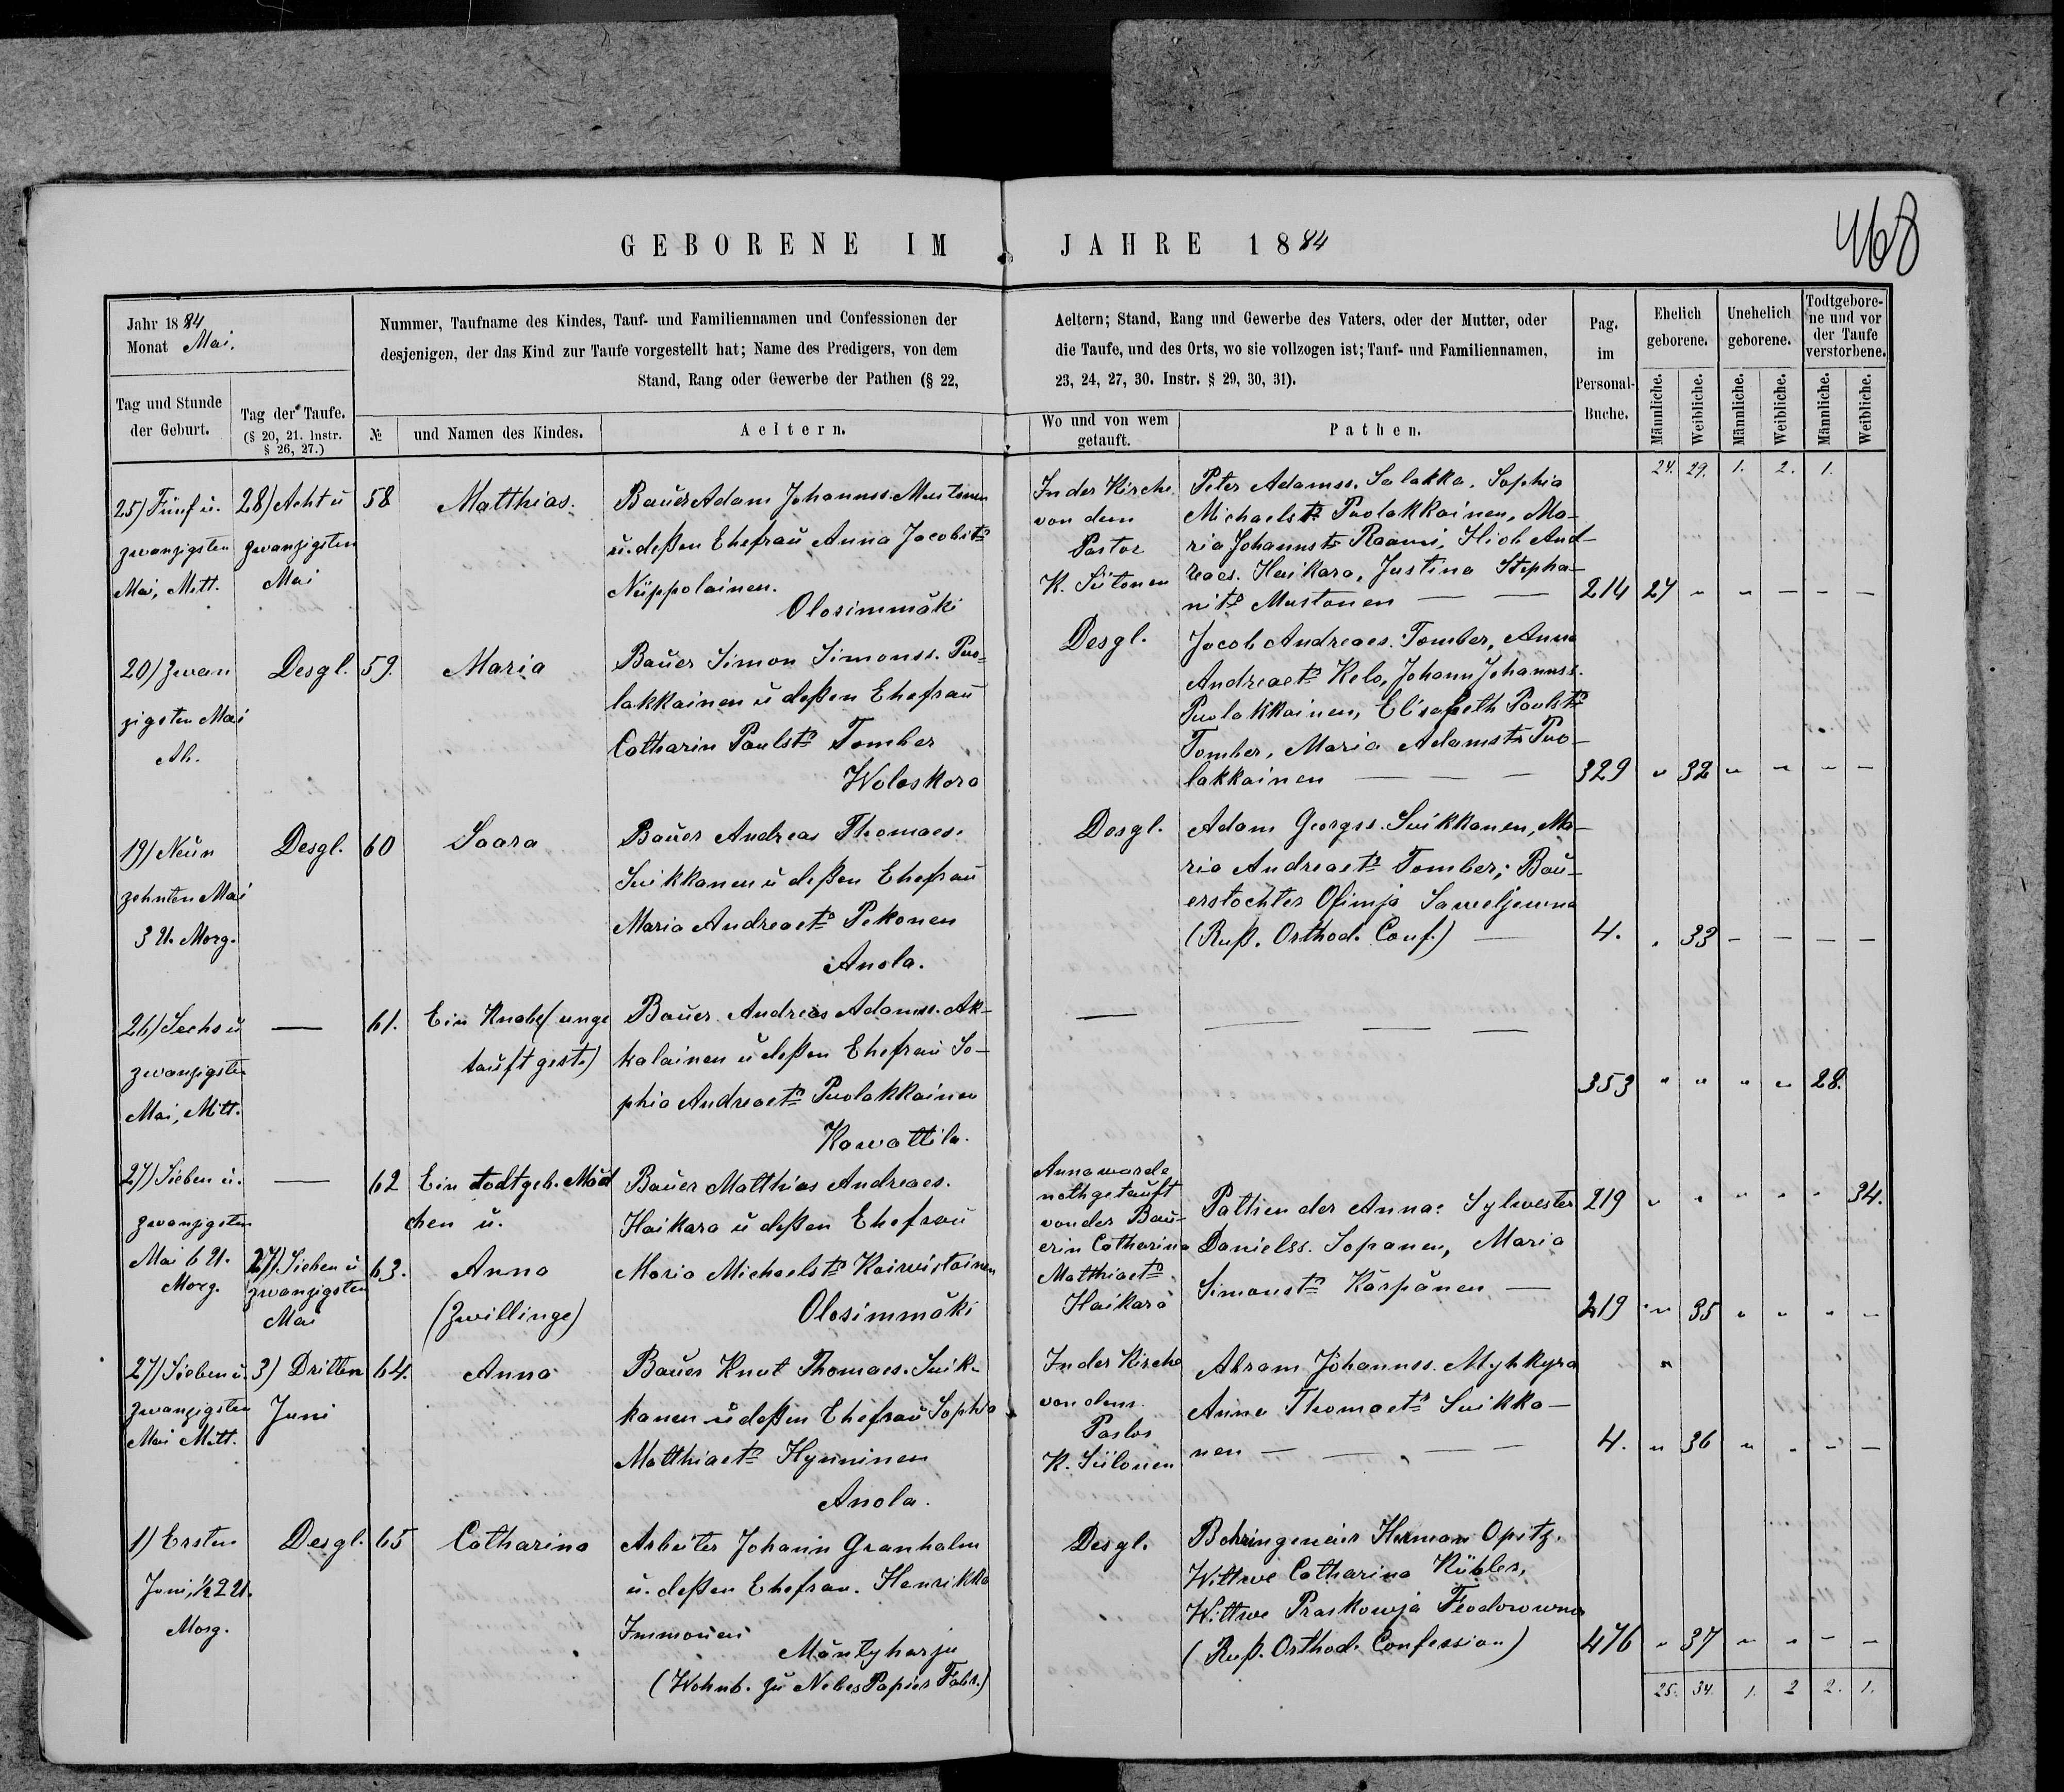 468
GEBORENE IM JAHRE 1884
Jahr 1884
Monat Mai.
Nummer, Taufname des Kindes, Tauf- und Familiennamen und Confessionen der
Aeltern; Stand, Rang und Gewerbe des Vaters, oder der Mutter, oder
desjenigen, der das Kind zur Taufe vorgestellt hat; Name des Predigers, von dem
die Taufe, und des Orts, wo sie vollzogen ist; Tauf- und Familiennamen,
Stand, Rang oder Gewerbe der Pathen (§ 22,
23, 24, 27, 30. Instr. § 29, 30, 31).
Pag.
im
Personal-
Buche.
Ehelich
geborene.
Unehelich
geborene.
Todtgebore-
ne und vor
der Taufe
verstorbene.
Tag und Stunde
der Geburt.
Tag der Taufe.
(§ 20, 21. Instr.
§ 26, 27.)
№
und Namen des Kindes.
Aeltern.
Wo und von wem
getauft.
Pathen.
Männliche.
Weibliche.
Männliche.
Weibliche.
Männliche.
Weibliche.
24. 29. 1. 2. 1.
25) Fünf u.
zwanzigsten
Mai, Mitt.
28) Acht u
zwanzigsten
Mai
58
Matthias.
Bauer Adam Johannss. Mustonen
u. deßen Ehefrau Anna Jacobstr
Nüppolainen.
Olosimmäki
In der Kirche
von dem
Pastor
K. Siitonen
Peter Adamss. Salakka. Sophia
Michaelstr Puolakkainen, Ma-
ria Johannstr Raami, Hiob And-
reaes. Haikara, Justina Stepha-
nitr Mustonen — —
214 27 " " – – –
20) Zwan
zigsten Mai
Ab.
Desgl.
59.
Maria
Bauer Simon Simonss. Puo-
lakkainen u deßen Ehefrau
Catharin Paulstr Tomber
Woloskora
Desgl.
Jacob Andreaes. Tomber, Anna
Andreaetr Kelo, Johann Johannss.
Puolakkainen, Elisabeth Paulstr
Tomber, Maria Adamstr Puo-
lakkainen — — —
329 " 32 " " – –
19) Neun
zehnten Mai
3 U. Morg.
Desgl.
60
Saara
Bauer Andreas Thomaes.
Suikkanen u deßen Ehefrau
Maria Andreaetr Pekonen
Anola.
Desgl.
Adam Georgss. Suikkanen, Ma-
ria Andreaetr Tomber; Bau-
erstochter Ofimja Saweljewna
(Ruß. Orthod. Conf.) —
4. " 33 – – – –
26) Sechs u
zwanzigsten
Mai, Mitt.
—
61.
Ein Knabe (unge
tauft gest.)
Bauer Andreas Adamss. Ak-
kalainen u deßen Ehefrau So-
phia Andreaetr Puolakkainen
Kawattila.
—
— — —
353 " " " " 28.
27) Sieben u.
zwanzigsten
Mai 6 U.
Morg.
—
62
Ein todtgeb. Mäd
chen u.
Bauer Matthias Andreaes.
Haikara u deßen Ehefrau
Maria Michaelstr Kaiwistainen
Olosimmäki
Anna wurde
nothgetauft
von der Bau-
erin Catharina
Matthiaetr
Haikara
Pathen der Anna: Sylvester
Danielss. Sopanen, Maria
Simonstr Kärpänen —
219 " " " " " 34.
27) Sieben u
zwanzigsten
Mai
63.
Anna
(Zwillinge)
219 " 35 " " " –
27) Sieben u.
zwanzigsten
Mai Mitt.
3) Dritten
Juni
64.
Anna
Bauer Knut Thomaes. Suik-
kanen u deßen Ehefrau Sophia
Matthiaetr Hynninen
Anola.
In der Kirche
von dem
Pastor
K. Siitonen
Abram Johannss. Myhkyra
Anna Thomaetr Suikka-
nen — — — —
4. " 36 " " – –
1) Ersten
Juni, ½ 2 U.
Morg.
Desgl.
65
Catharina
Arbeiter Johann Granholm
u. deßen Ehefrau. Henrikka
Immonen
Mäntyharju
(Wohnh. zu Papier Fabr.)
Desgl.
Herman Opitz.
Wittwe Catharina Kübler,
Wittwe Praskowja Feodorowna
(Ruß. Orthod. Confession)
476 " 37 " " – –
25. 34. 1. 2 2. 1.